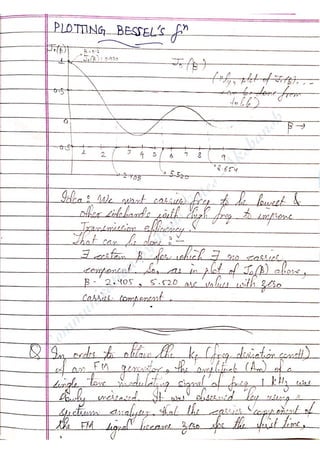 PLOTTING BESSEL'S fⁿ
J₀(β)
J₀(β)
1
0.5
0
-0.5
1 2 3 4 5 6 7 8 9
β →
2.405
5.520
8.654
Idea: We want carrier freq to be lowest &
other sidebands with high freq to improve
Transmission efficiency.
That can be done :-
∃ certain β for which ∄ no carrier
component. So, as in plot of J₀(β) above,
β - 2.405, 5.520 are values with zero
carrier component.
Q In order to obtain the kf (freq. deviation const)
of an FM generator, the amplitude (Am) of a
single tone modulating signal of freq 1 kHz was
slowly increased. It was observed by using a
spectrum analyser, that the carrier component of
the FM signal became zero for the first time,